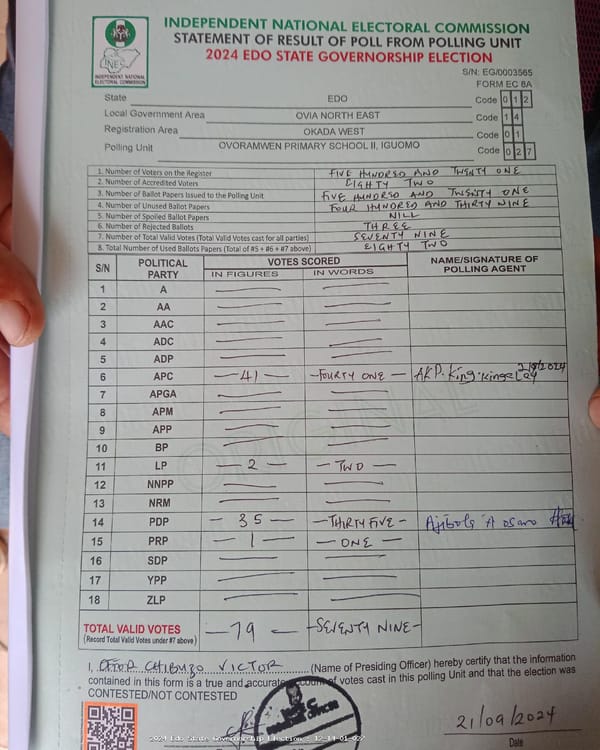 INDEPENDENT NATIONAL ELECTORAL COMMISSION
STATEMENT OF RESULT OF POLL FROM POLLING UNIT
2024 EDO STATE GOVERNORSHIP ELECTION
INEC
INDEPENDENT NATIONAL ELECTORAL COMMISSION
S/N: EG/0003565
FORM EC 8A
State EDO Code 0 1 2
Local Government Area OVIA NORTH EAST Code 1 4
Registration Area OKADA WEST Code 0 1
Polling Unit OVORAMWEN PRIMARY SCHOOL II, IGUOMO Code 0 2 7
1. Number of Voters on the Register FIVE HUNDRED AND TWENTY ONE
2. Number of Accredited Voters EIGHTY TWO
3. Number of Ballot Papers Issued to the Polling Unit FIVE HUNDRED AND TWENTY ONE
4. Number of Unused Ballot Papers FOUR HUNDRED AND THIRTY NINE
5. Number of Spoiled Ballot Papers NILL
6. Number of Rejected Ballots THREE
7. Number of Total Valid Votes (Total Valid Votes cast for all parties) SEVENTY NINE
8. Total Number of Used Ballot Papers (Total of #5 + #6 + #7 above) EIGHTY TWO
S/N POLITICAL PARTY VOTES SCORED NAME/SIGNATURE OF POLLING AGENT
IN FIGURES IN WORDS
1 A
2 AA
3 AAC
4 ADC
5 ADP
6 APC – 41 – – FOURTY ONE –
7 APGA
8 APM
9 APP
10 BP
11 LP – 2 – – TWO –
12 NNPP
13 NRM
14 PDP – 35 – – THIRTY FIVE –
15 PRP – 1 – – ONE –
16 SDP
17 YPP
18 ZLP
ORIGINAL
TOTAL VALID VOTES – 79 – – SEVENTY NINE –
(Record Total Valid Votes under #7 above)
I, CHIBUZO VICTOR (Name of Presiding Officer) hereby certify that the information
contained in this form is a true and accurate account of votes cast in this polling Unit and that the election was
CONTESTED/NOT CONTESTED
21/09/2024
Date